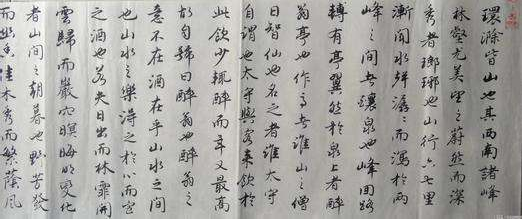 環滁皆山也其西南諸峰
林壑尤美望之蔚然而深
秀者瑯琊也山行六七里
漸聞水聲潺潺而瀉於兩
峰之間者釀泉也峰回路
轉有亭翼然於泉上者醉
翁亭也作亭者誰山之僧
曰智仙也名之者誰太守
自謂也太守與客來飲於
此飲少輒醉而年又最高
故自號曰醉翁也醉翁之
意不在酒在乎山水之間
也山水之樂得之於心而寓
之酒也若夫日出而林霏開
雲歸而巖穴暝晦明變化
者山間之朝暮也野芳發
而幽香佳木秀而繁蔭風